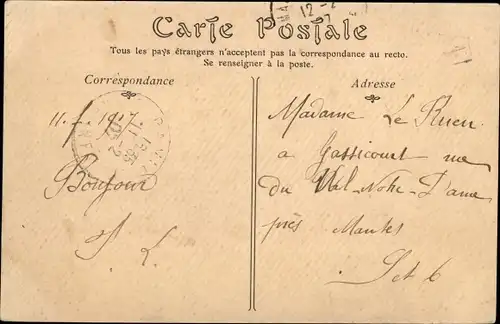 Carte Postale
Tous les pays étrangers n'acceptent pas la correspondance au recto.
Se renseigner à la poste.
Correspondance
Adresse
12 - 2
1907
Bonjour
Madame Le
a Gassicourt rue
du Val-Notre-Dame
près Mantes
S et O